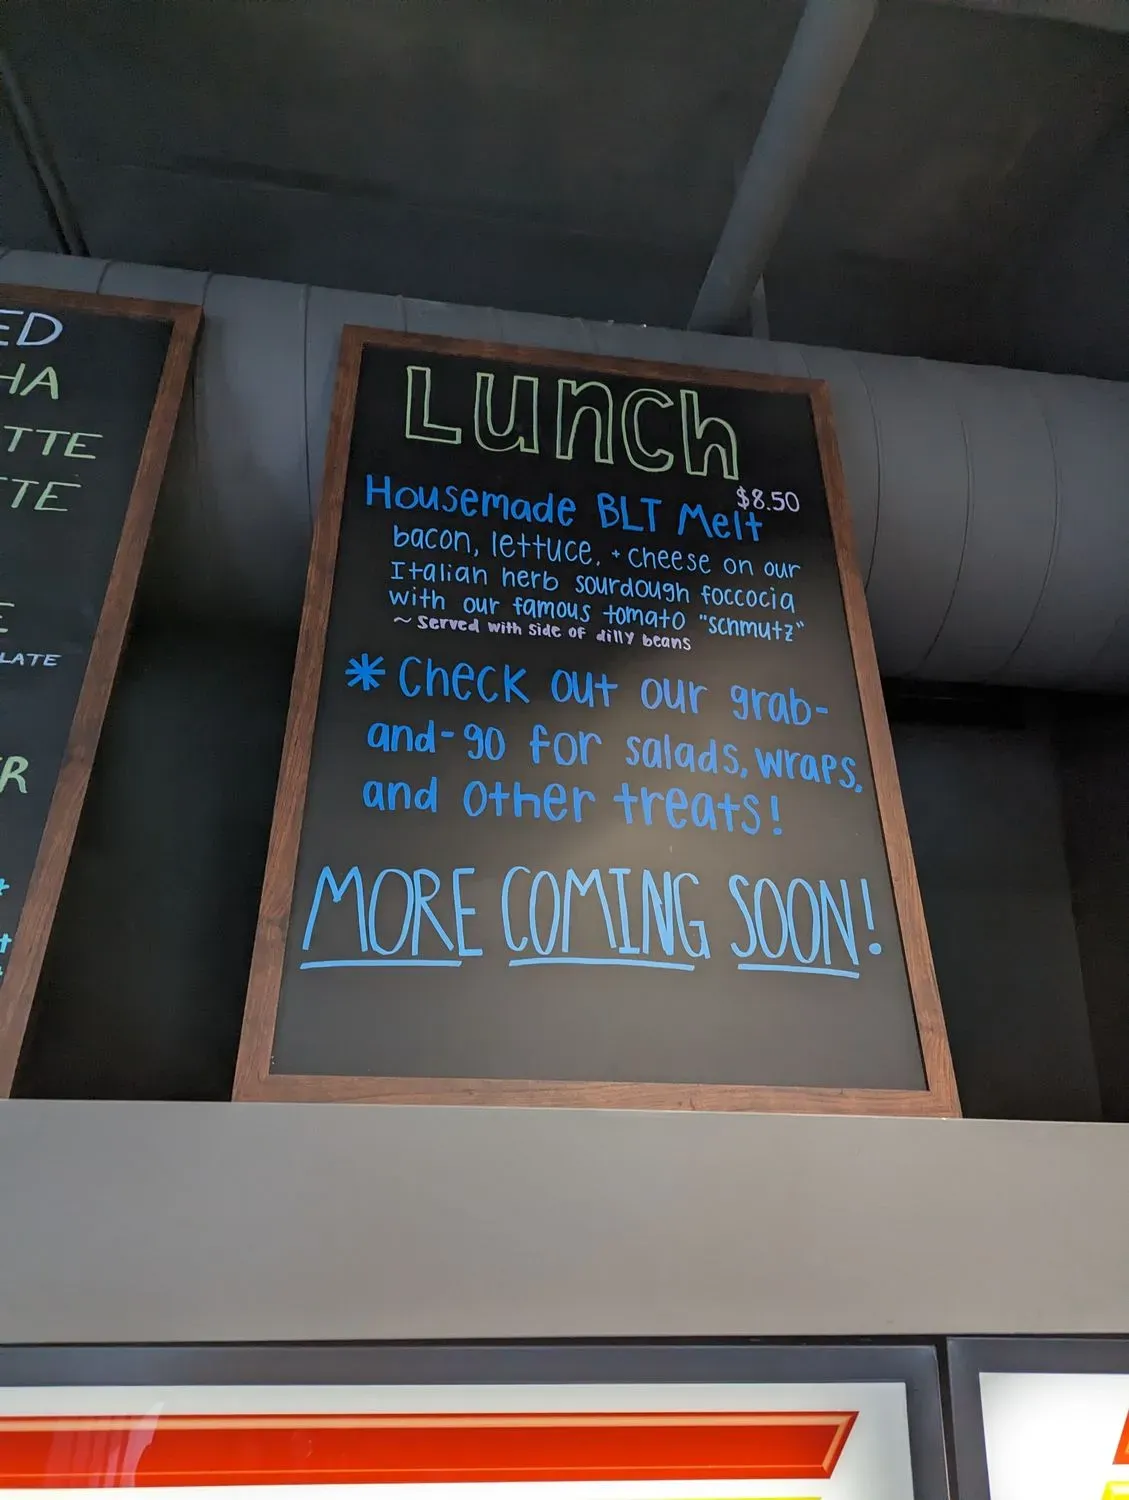 ED
HA
TTE
TE
E
LATE
R
Lunch
$8.50
Housemade BLT Melt
bacon, lettuce, + cheese on our
Italian herb sourdough foccocia
with our famous tomato "schmutz"
~ Served with side of dilly beans
* Check out our grab-
and-go for salads, wraps,
and other treats!
MORE COMING SOON!